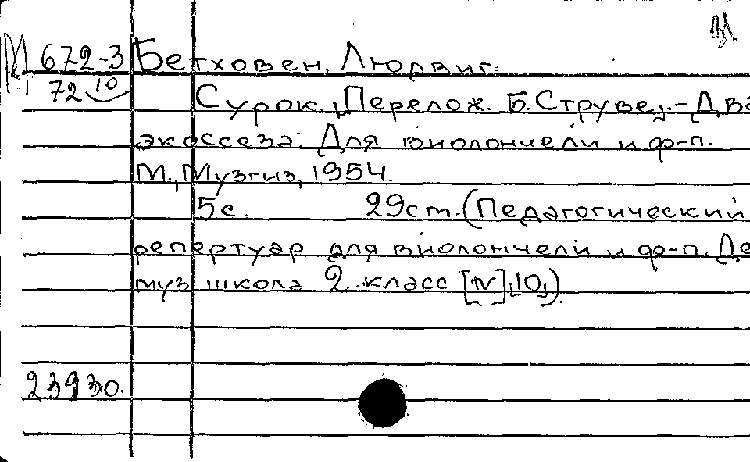 М 672-3 Бетховен, Людвиг.
72 10
Сурок. [Перелож. Б. Струве]. - Два
экоссеза. Для виолончели и ф-п.
М., Музгиз, 1954.
5с. 29см. (Педагогический
репертуар для виолончели и ф-п. Де
муз школа 2 класс [N], 10,)
23930.